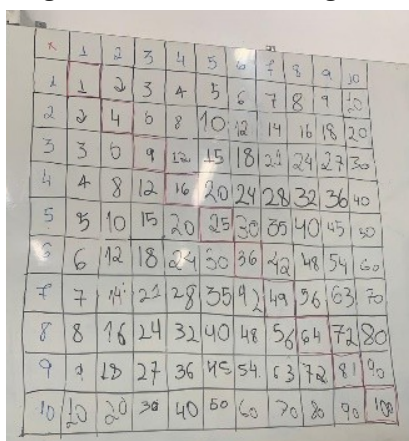 x 1 2 3 4 5 6 7 8 9 10
1 1 2 3 4 5 6 7 8 9 10
2 2 4 6 8 10 12 14 16 18 20
3 3 6 9 12 15 18 21 24 27 30
4 4 8 12 16 20 24 28 32 36 40
5 5 10 15 20 25 30 35 40 45 50
6 6 12 18 24 30 36 42 48 54 60
7 7 14 21 28 35 42 49 56 63 70
8 8 16 24 32 40 48 56 64 72 80
9 9 18 27 36 45 54 63 72 81 90
10 10 20 30 40 50 60 70 80 90 100